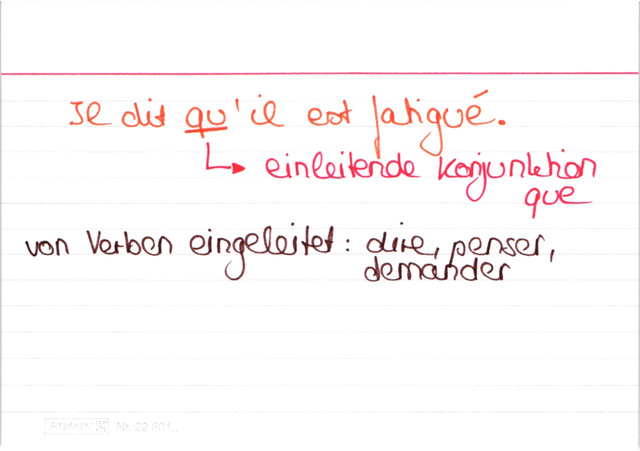 Il dit qu'il est fatigué.
einleitende Konjunktion
que
von Verben eingeleitet: dire, penser,
demander
Nr. 22 801